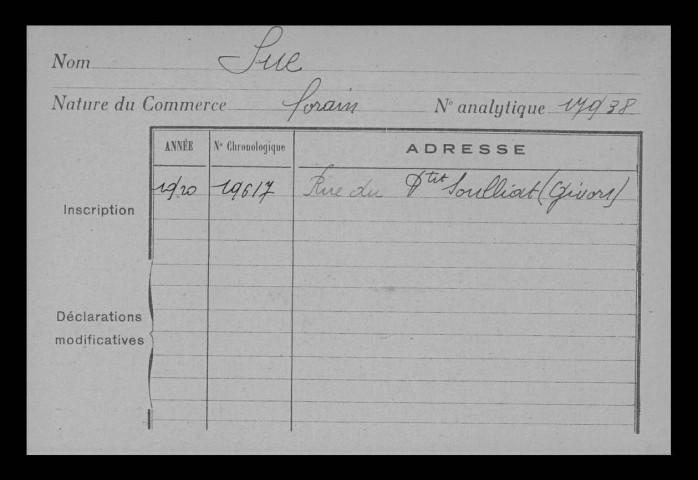 Nom Sue
Nature du Commerce forain N° analytique 17938
ANNÉE N° Chronologique ADRESSE
Inscription 1920 19617 Rue du Ptit Soulliat (Givors)
Déclarations
modificatives